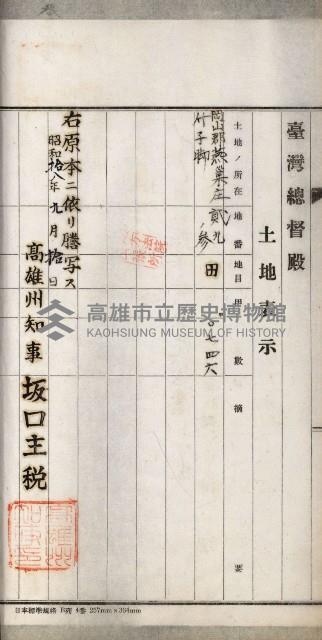 臺灣總督殿
土地表示
土地ノ所在 地番 地目 甲數 摘要
岡山郡燕巢庄
竹子脚
貳九ノ参 田 〇七四六
右原本ニ依リ謄写ス
昭和拾八年九月拾日
高雄州知事 坂口主税
高雄市立歷史博物館
KAOHSIUNG MUSEUM OF HISTORY
日本標準規格 B列 4番 257mm×364mm